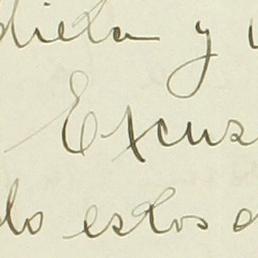 diela y
Excus
do estos d